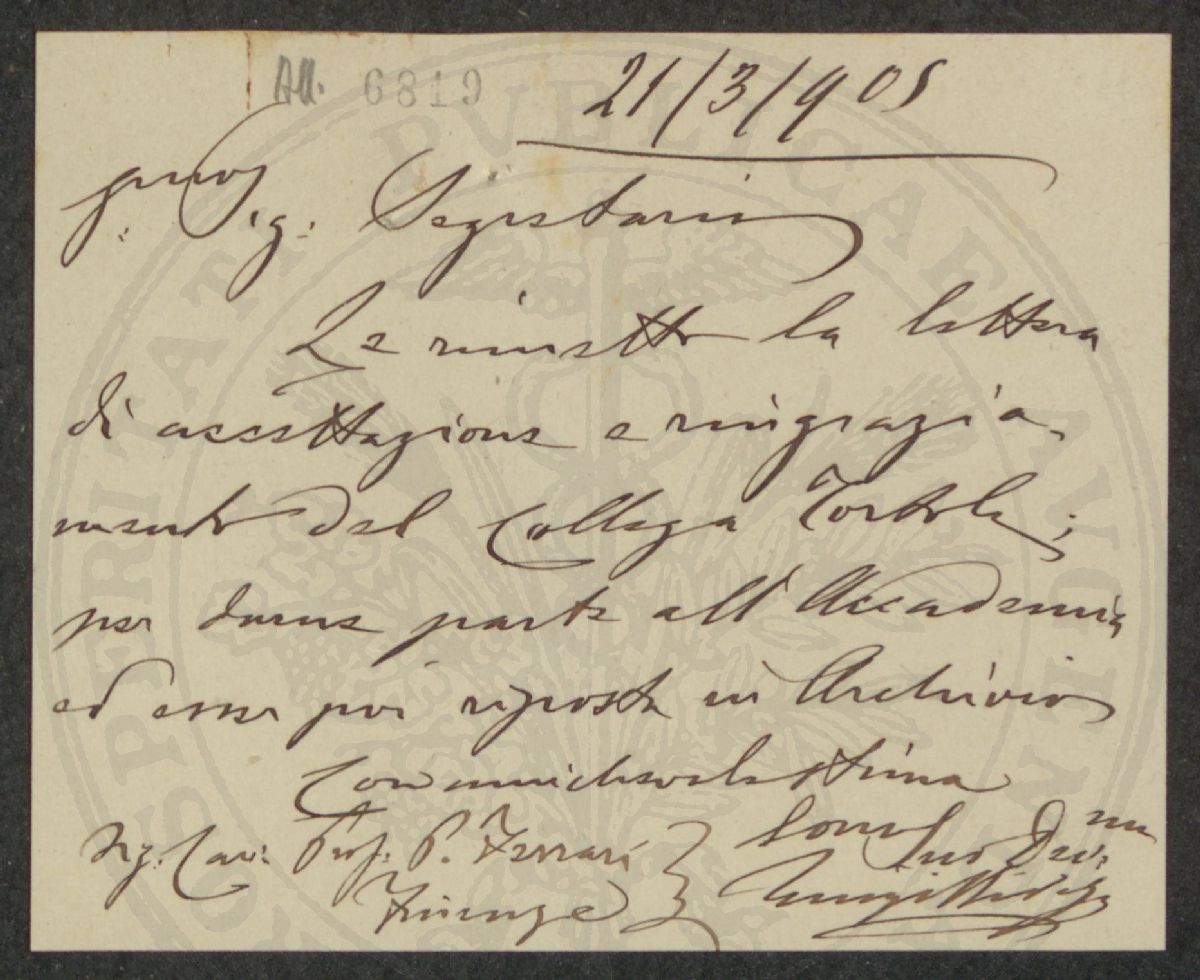 All. 6819
21/3/905
Sig. Segretario
Le rimetto la lettera
di accettazione e ringrazia-
mento del Collega Torboli;
per darne parte all'Accademia
ed esser poi riposta in Archivio
Con amichevole stima
Sig. Cav. Prof. P. Ferrari } Sono Suo Dev.mo
Firenze
PROSPERITATI PVBLICAE AVGENDAE